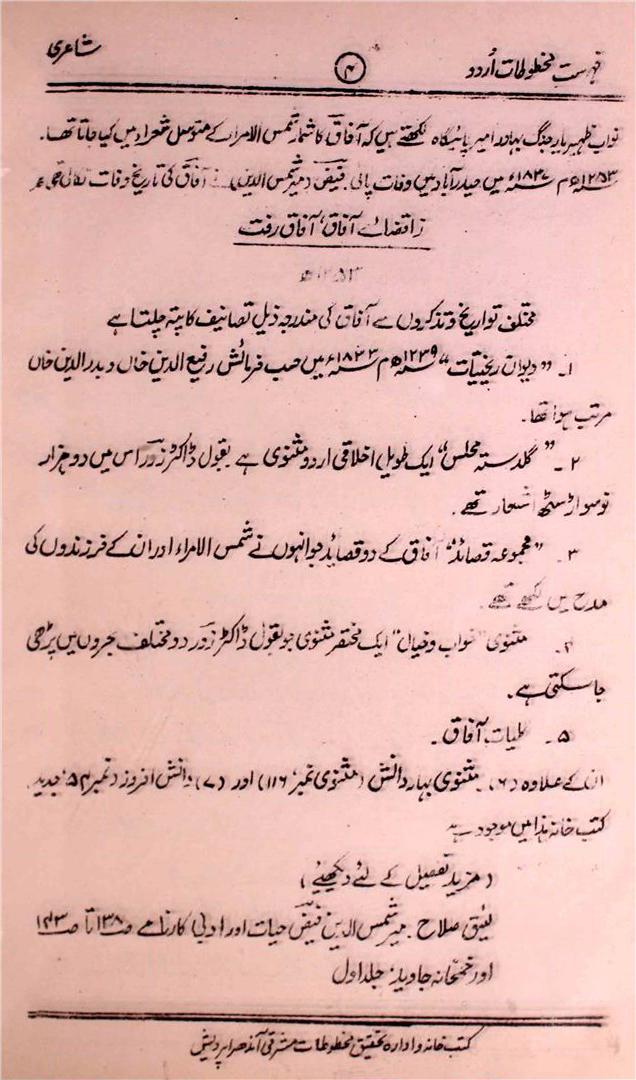 فہرست مخطوطات اُردو ۴ شاعری
نواب ظہیر یار جنگ بہادر امیر پائیگاہ لکھتے ہیں کہ آفاقؔ کا شمار شمس الامراء کے متوسل شعراء میں کیا جاتا تھا۔
۱۲۵۳ھ م ۱۸۳۷ء میں حیدرآباد میں وفات پائی۔ فیضؔ (میر شمس الدین) نے آفاقؔ کی تاریخ وفات نکالی تھی،
زاقضائے آفاق، آفاق رفت
۱۲۵۳ھ
مختلف تواریخ و تذکروں سے آفاقؔ کی مندرجہ ذیل تصانیف کا پتہ چلتا ہے
۱۔ "دیوان ریختیات" ۱۲۳۹ھ م ۱۸۳۳ء میں حسب فرمائش رفیع الدین خاں و بدر الدین خاں
مرتب ہوا تھا۔
۲۔ "گلدستہ مجلس" ایک طویل اخلاقی اردو مثنوی ہے بقول ڈاکٹر زورؔ اس میں دو ہزار
نو سو اڑسٹھ اشعار تھے۔
۳۔ "مجموعہ قصائد" آفاق کے دو قصائد جو انہوں نے شمس الامراء اور ان کے فرزندوں کی
مدح میں لکھے تھے۔
۴۔ مثنوی "خواب و خیال" ایک مختصر مثنوی جو بقول ڈاکٹر زورؔ دو مختلف بحروں میں پڑھی
جا سکتی ہے۔
۵۔ کلیات آفاق۔
ان کے علاوہ (۶) مثنوی بہار دانش (مثنوی نمبر ۱۱۶) اور (۷) دانش افروز (نمبر ۵۴ جدید
کتب خانہ ہذا میں موجود ہے
(مزید تفصیل کے لئے دیکھئے)
لئیق صلاح۔ میر شمس الدین فیضؔ حیات اور ادبی کارنامے ص ۱۳۸ تا ص ۱۴۳
اور خمخانہ جاوید، جلد اول
کتب خانہ و ادارہ تحقیق مخطوطات مشرقی آندھرا پردیش